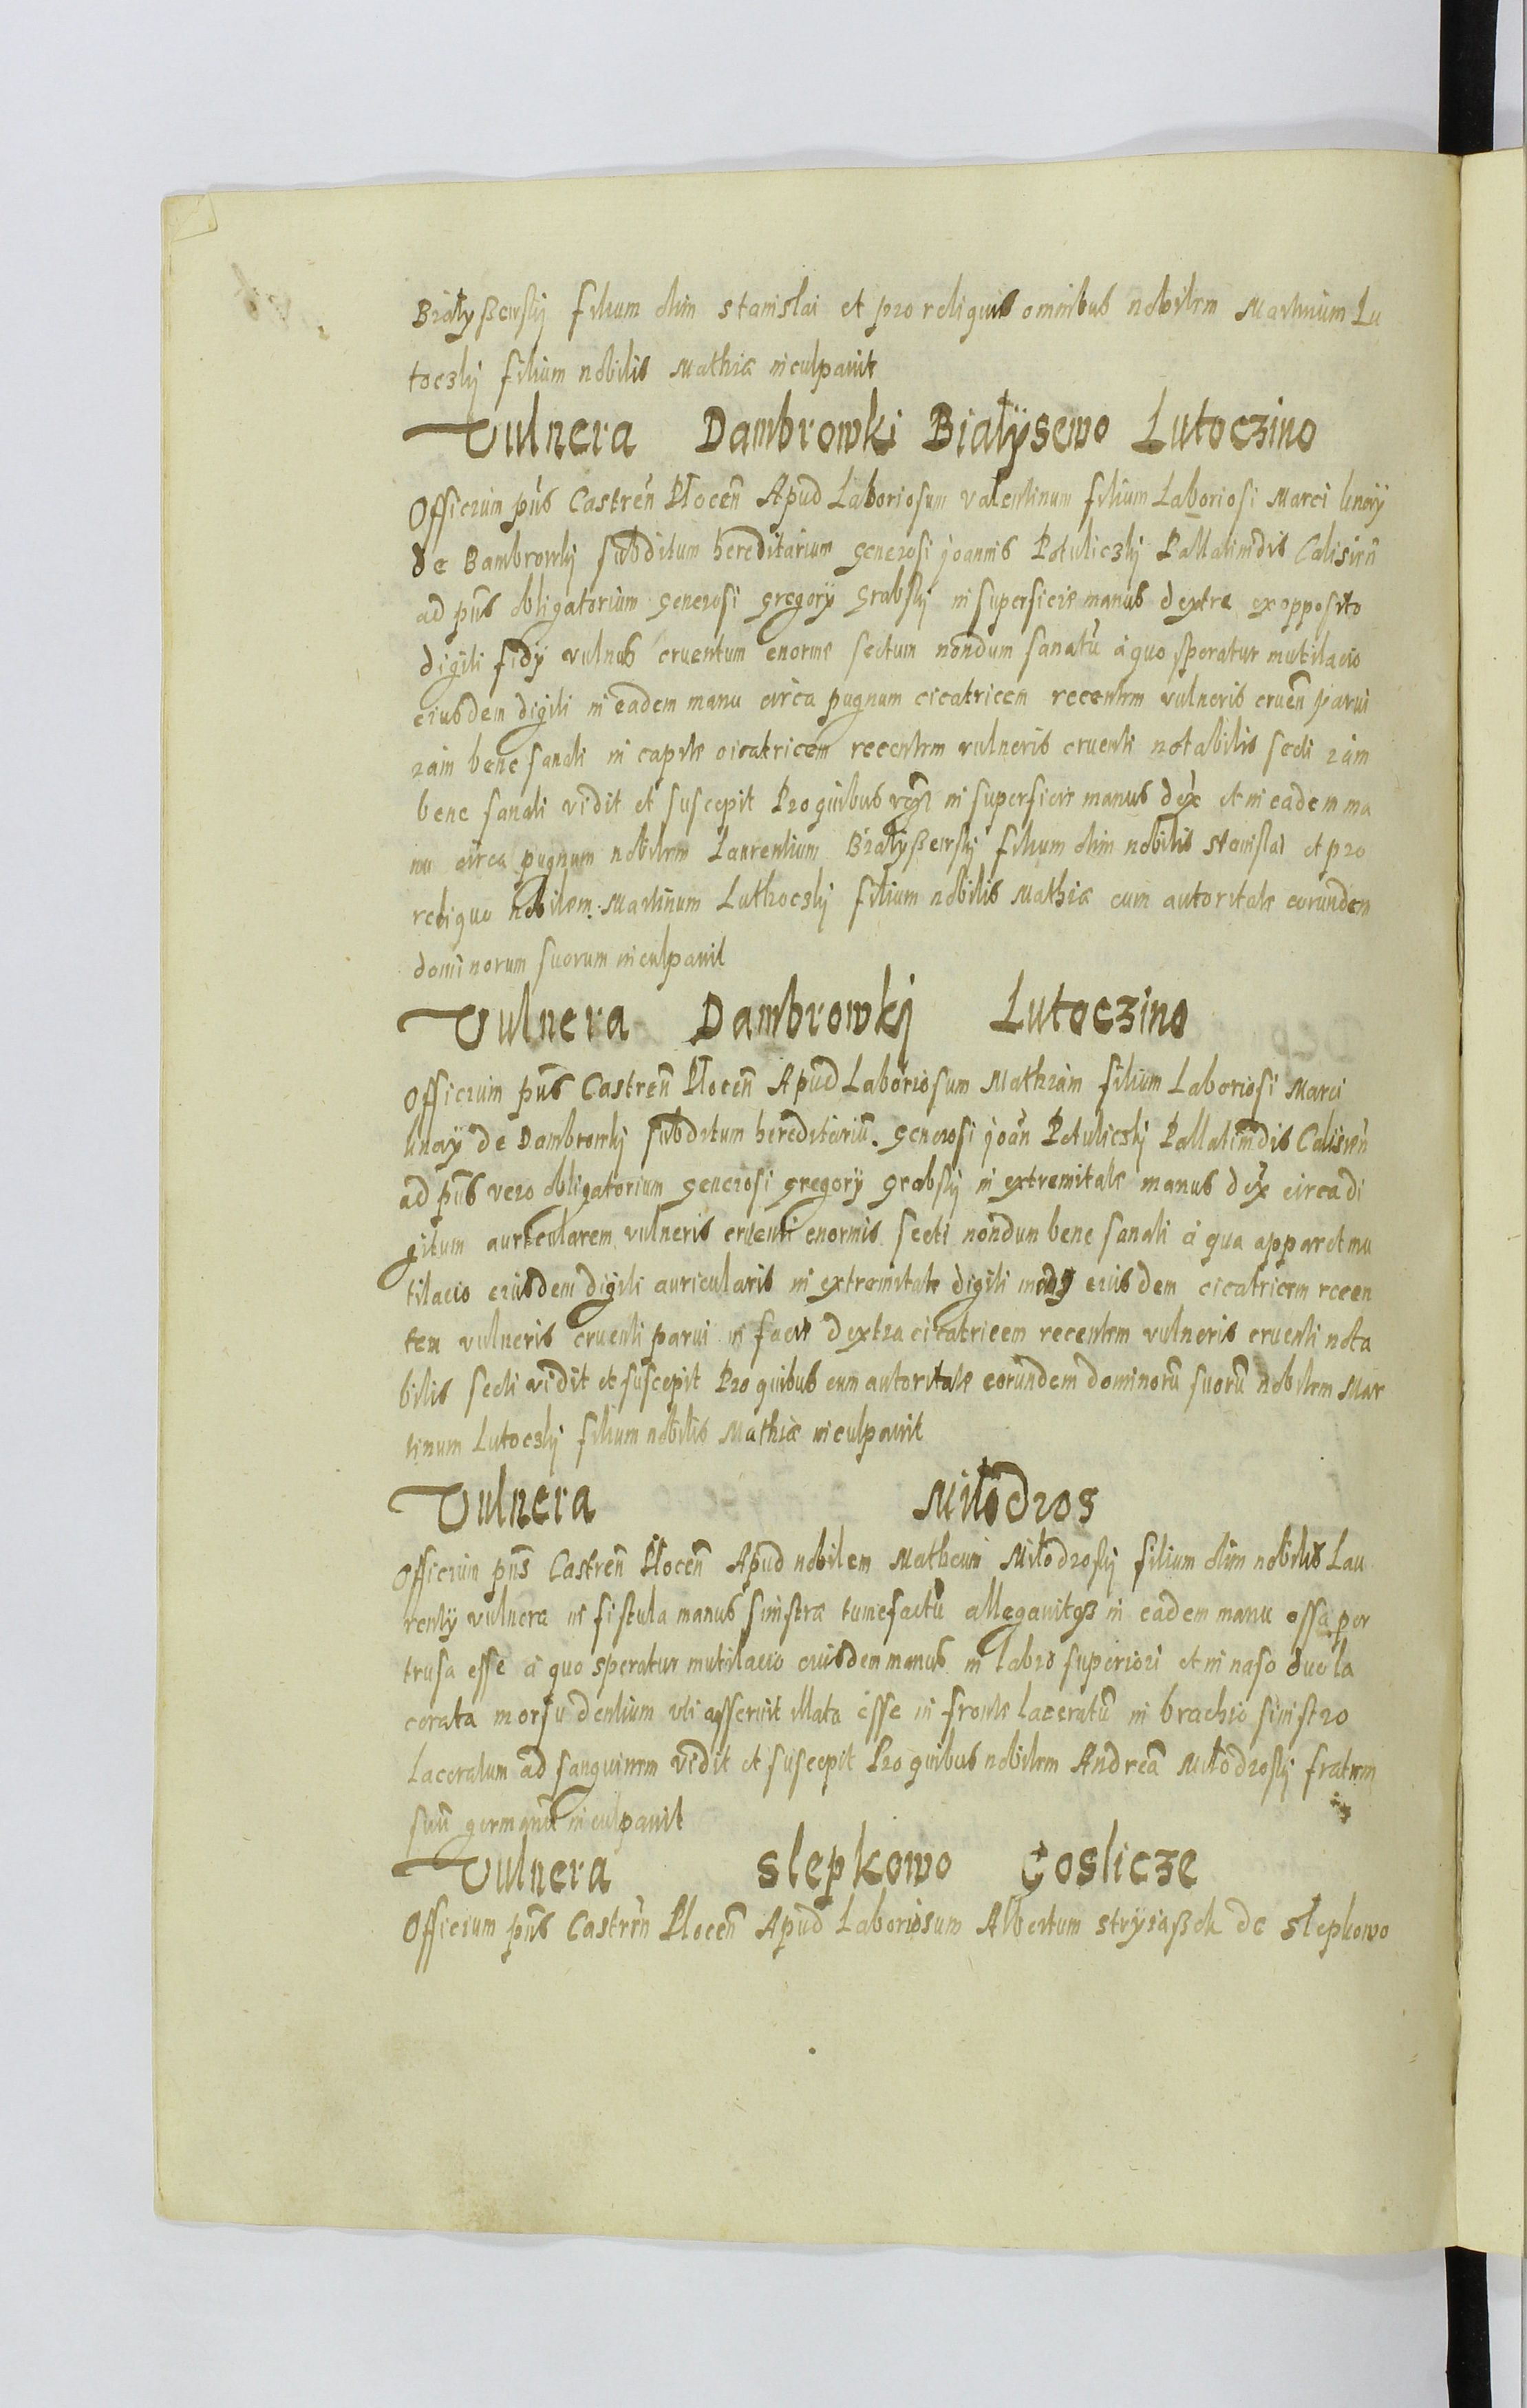 Białyßewskij filium olim Stanislai et pro reliquis omnibus nobilem Martinum Lu
toczkij filium nobilis Mathiæ inculpavit
Vulnera Dambrowki Białÿsewo Lutoczino
Officium pn̄s Castren̄ Płocen̄ Apud Laboriosum Valentinum filium Laboriosi Marci
de Dambrowkij subditum hereditarium generosi Joannis Potuliczkij Pallatinidis Calisien̄
ad pn̄s obligatorium generosi Gregorÿ Grabskij in superficie manus dextræ ex opposito
digiti vulnus cruentum enorme sectum nondum sanatū a quo speratur mutilacio
eiusdem digiti in eadem manu circa pugnum cicatricem recentem vulneris cruen̄ parui
iam bene sanati in capite cicatricem recentem vulneris cruenti notabilis secti iam
bene sanati vidit et suscepit Pro quibus in superficie manus dex̄ et in eadem ma
nu circa pugnum nobilem Laurentium Białyßewskij filium olim nobilis Stanislai et pro
reliquo nobilem Martinum Luthoczkij filium nobilis Mathiæ cum autoritate eorundem
dominorum suorum inculpavit
Vulnera Dambrowkj Lutoczino
Officium pn̄s Castren̄ Płocen̄ Apud Laboriosum Mathiam filium Laboriosi Marci
de Dambrowkij subditum hereditariū generosi Joan̄ Potuliczkij Pallatinidis Calisien̄
ad pn̄s vero obligatorium generosi Gregorÿ Grabskij in extremitate manus dex̄ circa di
gitum auricularem vulneris cruenti enormis secti nondum bene sanati a qua apparet mu
tilacio eiusdem digiti auricularis in extremitate digiti medÿ eiusdem cicatricem recen
tem vulneris cruenti parui in facie dextra cicatricem recentem vulneris cruenti nota
bilis secti vidit et suscepit Pro quibus cum autoritate eorundem dominorū suorū nobilem Mar
tinum Lutoczkij filium nobilis Mathiæ inculpavit
Vulnera Miłodros
Officium pn̄s Castren̄ Płocen̄ Apud nobilem Matheum Miłodroskij filium olim nobilis Lau
rentÿ vulnera in fistula manus sinistræ tumefactū allegavitqȝ in eadem manu ossa per
trusa esse a quo speratur mutilacio eiusdem manus in labro superiori et in naso duo la
cerata morsu dentium uti asseruit illata esse in fronte laceratū in brachio sinistro
laceratum ad sanguinem vidit et suscepit Pro quibus nobilem Andreā Miłodroskij fratrem
suū germanū inculpavit
Vulnera Slepkowo Goslicze
Officium pn̄s Castren̄ Plocen̄ Apud Laboriosum Albertum Stryiaßek de Slepkowo